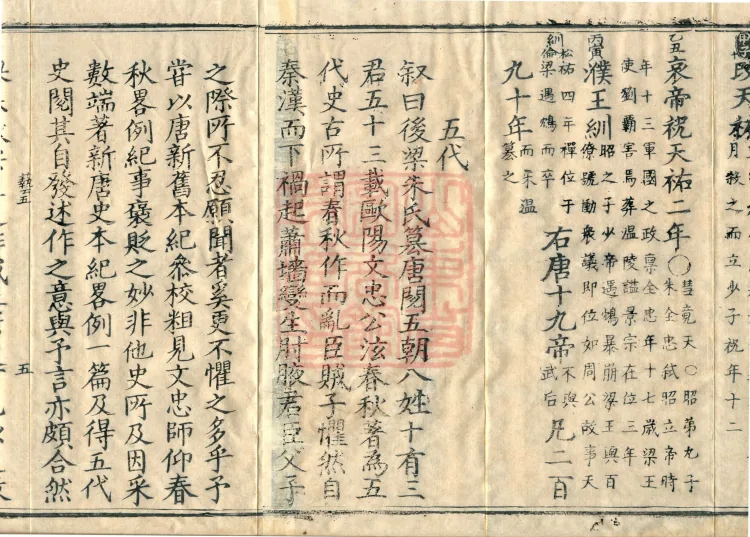 氏天祐
月毅之而立少子祝年十二
乙丑
哀帝祝天祐二年
○彗竟天○昭第九子
朱全忠弑昭立帝時
年十三軍國之政稟全忠年十七歲梁王
使劉霸害焉葬溫陵謚景宗在位三年
丙寅
濮王紃
昭之子少帝遇鴆暴崩梁王與百
僚號勸衆議即位如周公故事天
祐四年禪位于
梁遇鴆而卒
紃松倫
右唐十九帝
不與
武后
凡二百
九十年
而朱温
簒之
五代
叙曰後梁朱氏簒唐閱五朝八姓十有三
君五十三載歐陽文忠公泫春秋著為五
代史古所謂春秋作而亂臣賊子懼然自
秦漢而下禍起蕭墻變生肘腋君臣父子
之際所不忍願聞者奚更不懼之多乎予
甞以唐新舊本紀叅校粗見文忠師仰春
秋畧例紀事襃貶之妙非他史所及因采
數端著新唐史本紀畧例一篇及得五代
史閱其自發述作之意與予言亦頗合然
五